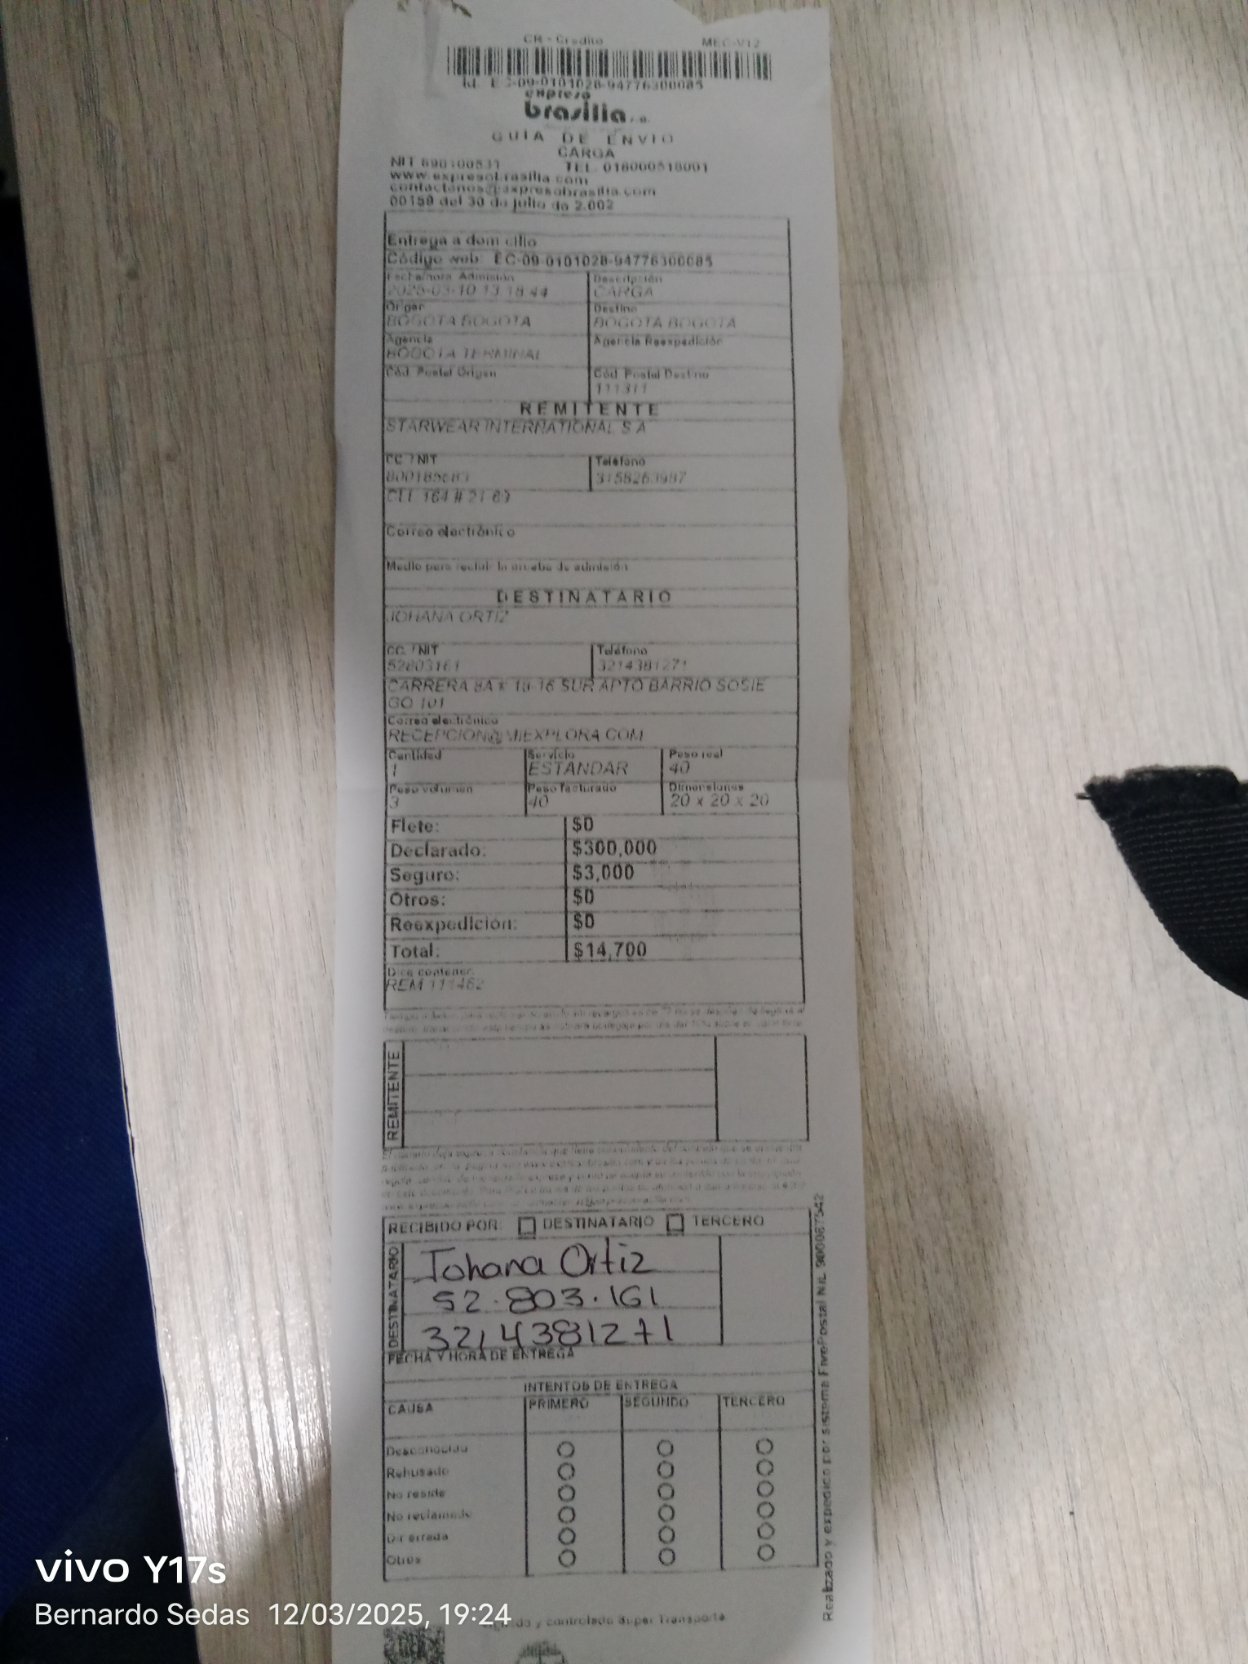 CR - Credito MEC-V12
Id. EC-09-0101028-94776300085
expreso
brasilia s.a.
GUIA DE ENVIO
CARGA
NIT 890100531 TEL. 018000518001
www.expresobrasilia.com
contactenos@expresobrasilia.com
00159 del 30 de julio de 2.002
Entrega a domicilio
Código web: EC-09-0101028-94776300085
Fecha/hora Admisión Descripción
2025-03-10 13:18:44 CARGA
Origen Destino
BOGOTA BOGOTA BOGOTA BOGOTA
Agencia Agencia Reexpedición
BOGOTA TERMINAL
Cód. Postal Origen Cód. Postal Destino
111311
REMITENTE
STARWEAR INTERNATIONAL S A
CC / NIT Teléfono
800185683 3158263987
CLL 164 # 21 69
Correo electrónico
Medio para recibir la prueba de admisión
DESTINATARIO
JOHANA ORTIZ
CC / NIT Teléfono
52803161 3214381271
CARRERA 8A # 18 16 SUR APTO BARRIO SOSIE
GO 101
Correo electrónico
RECEPCION@MIEXPLORA.COM
Cantidad Servicio Peso real
1 ESTANDAR 40
Peso volumen Peso facturado Dimensiones
3 40 20 x 20 x 20
Flete: $0
Declarado: $300,000
Seguro: $3,000
Otros: $0
Reexpedición: $0
Total: $14,700
Dice contener:
REM 111462
REMITENTE
RECIBIDO POR: DESTINATARIO TERCERO
DESTINATARIO
Johana Ortiz
52.803.161
3214381271
FECHA Y HORA DE ENTREGA
INTENTOS DE ENTREGA
CAUSA PRIMERO SEGUNDO TERCERO
Desconocido
Rehusado
No reside
No reclamado
Dir errada
Otros
Realizado y expedido por sistema FivePostal Nit. 900087542
y controlado Super Transporte
vivo Y17s
Bernardo Sedas 12/03/2025, 19:24